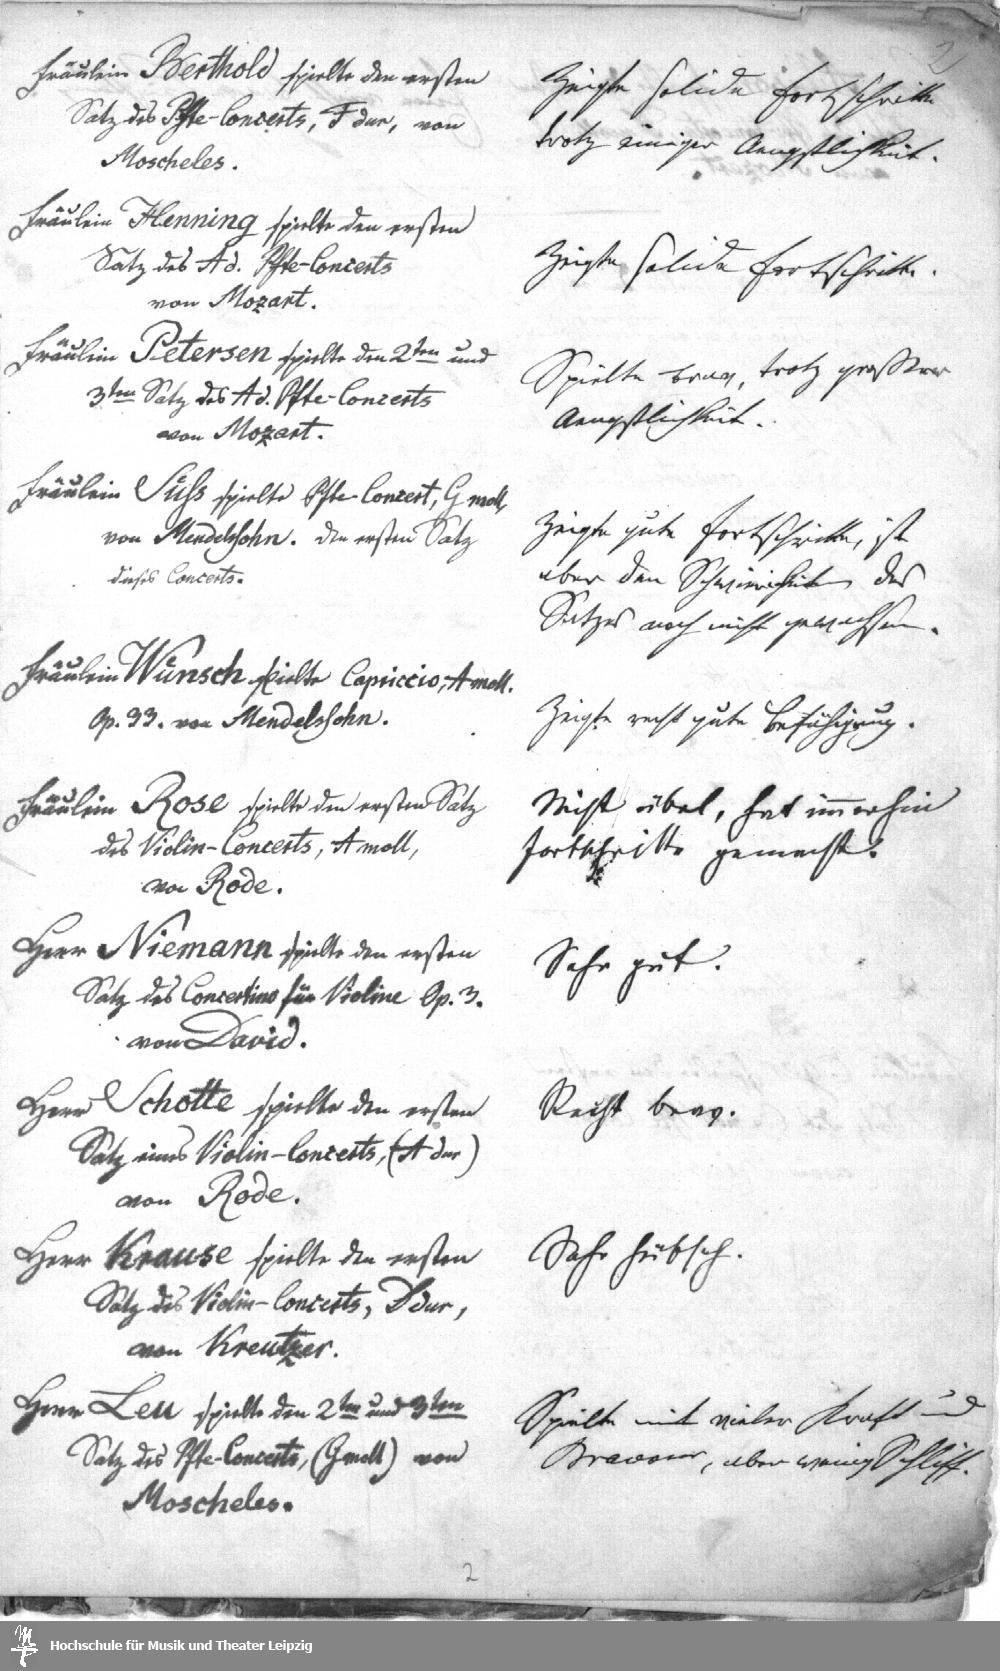 2
Fräulein Berthold spielte den ersten
Satz des Pfte-Concerts, F dur, von
Moscheles.
Zeigte solide Fortschritte
trotz einiger Aengstlichkeit.
Fräulein Henning spielte den ersten
Satz des A d. Pfte-Concerts
von Mozart.
Zeigte solide Fortschritte.
Fräulein Petersen spielte den 2ten und
3ten Satz des A d. Pfte-Concerts
von Mozart.
Spielte brav, trotz grosser
Aengstlichkeit.
Fräulein Süss spielte Pfte-Concert, G moll,
von Mendelssohn. den ersten Satz
dieses Concerts.
Zeigte gute Fortschritte, ist
aber den Schwierigkeiten des
Satzes noch nicht gewachsen.
Fräulein Wünsch spielte Capriccio, A moll.
Op. 33. von Mendelssohn.
Zeigte recht gute Befähigung.
Fräulein Rose spielte den ersten Satz
des Violin-Concerts, A moll,
von Rode.
Nicht übel, hat immerhin
Fortschritte gemacht.
Herr Niemann spielte den ersten
Satz des Concertino für Violine Op. 3.
von David.
Sehr gut.
Herr Schotte spielte den ersten
Satz eines Violin-Concerts, (A dur)
von Rode.
Recht brav.
Herr Krause spielte den ersten
Satz des Violin-Concerts, D dur,
von Kreutzer.
Sehr hübsch.
Herr Leu spielte den 2ten und 3ten
Satz des Pfte-Concerts, (G moll) von
Moscheles.
Spielte mit vieler Kraft und
Bravour, aber wenig Schliff.
2
Hochschule für Musik und Theater Leipzig